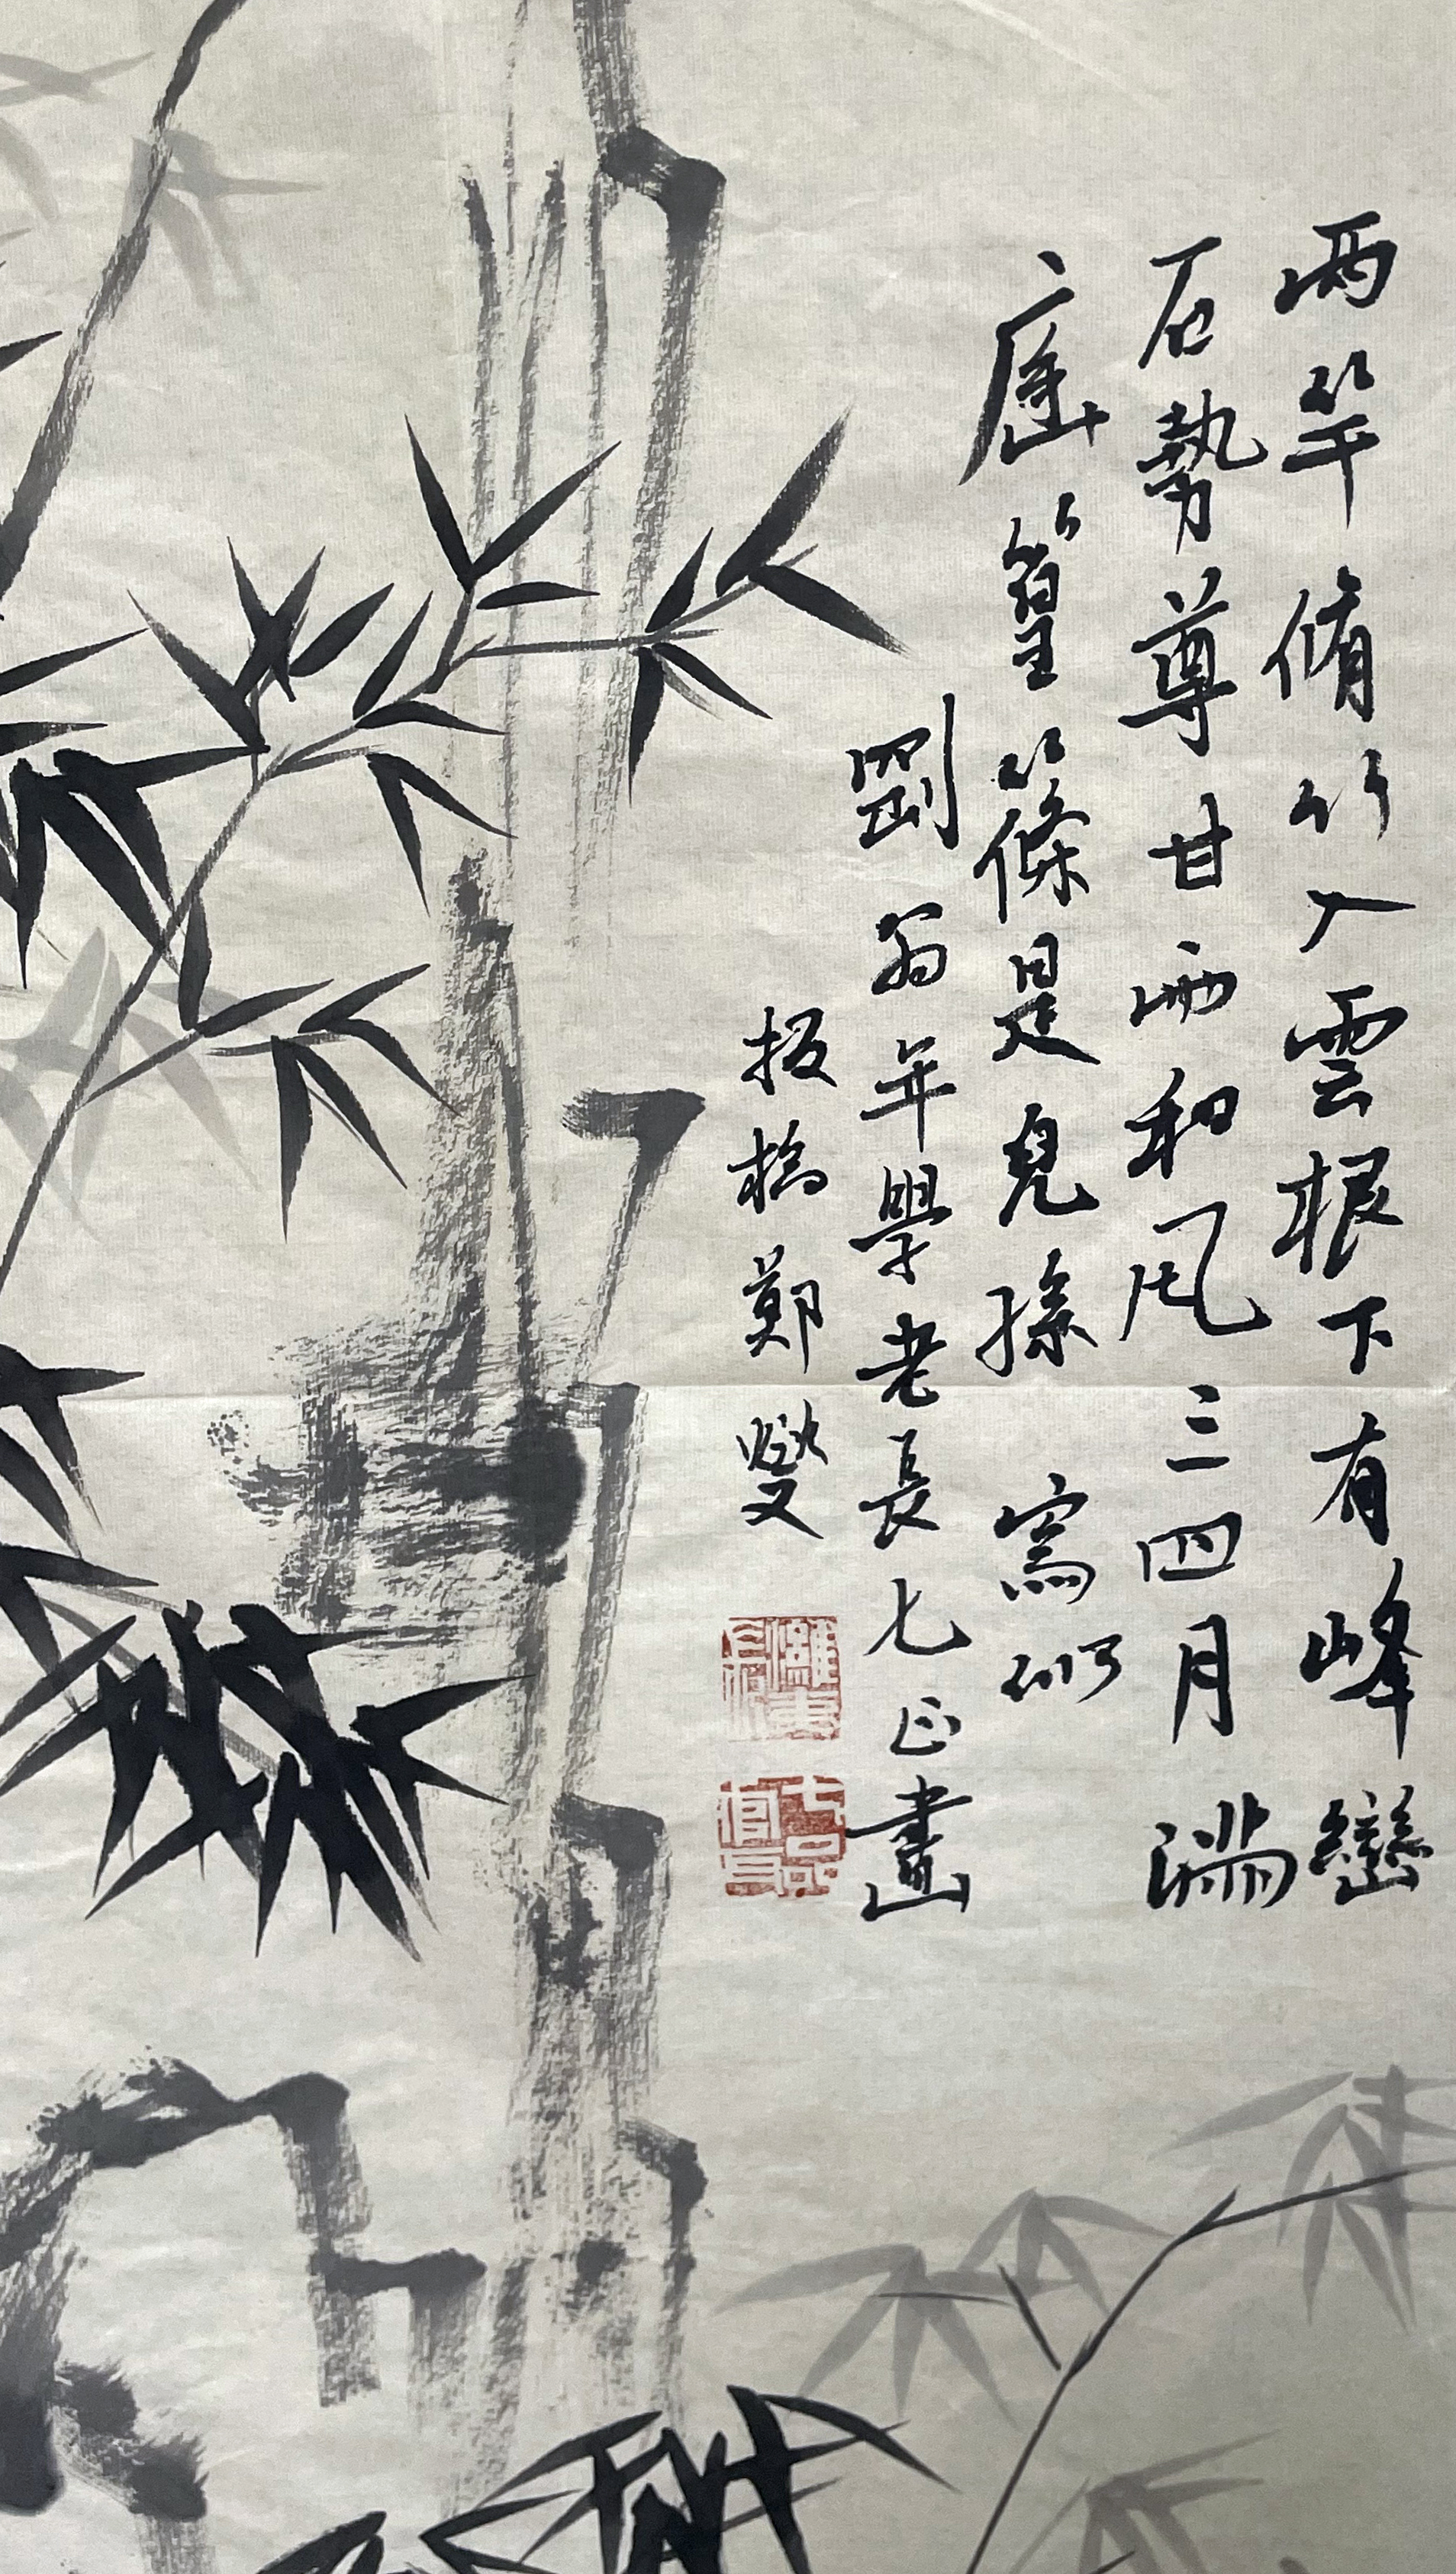 兩竿脩竹入雲根下有峰巒
石勢尊甘雨和風三四月滿
庭篁篠是兒孫 寫似
劉翁年學老長七正畫
板橋鄭燮
七品官耳